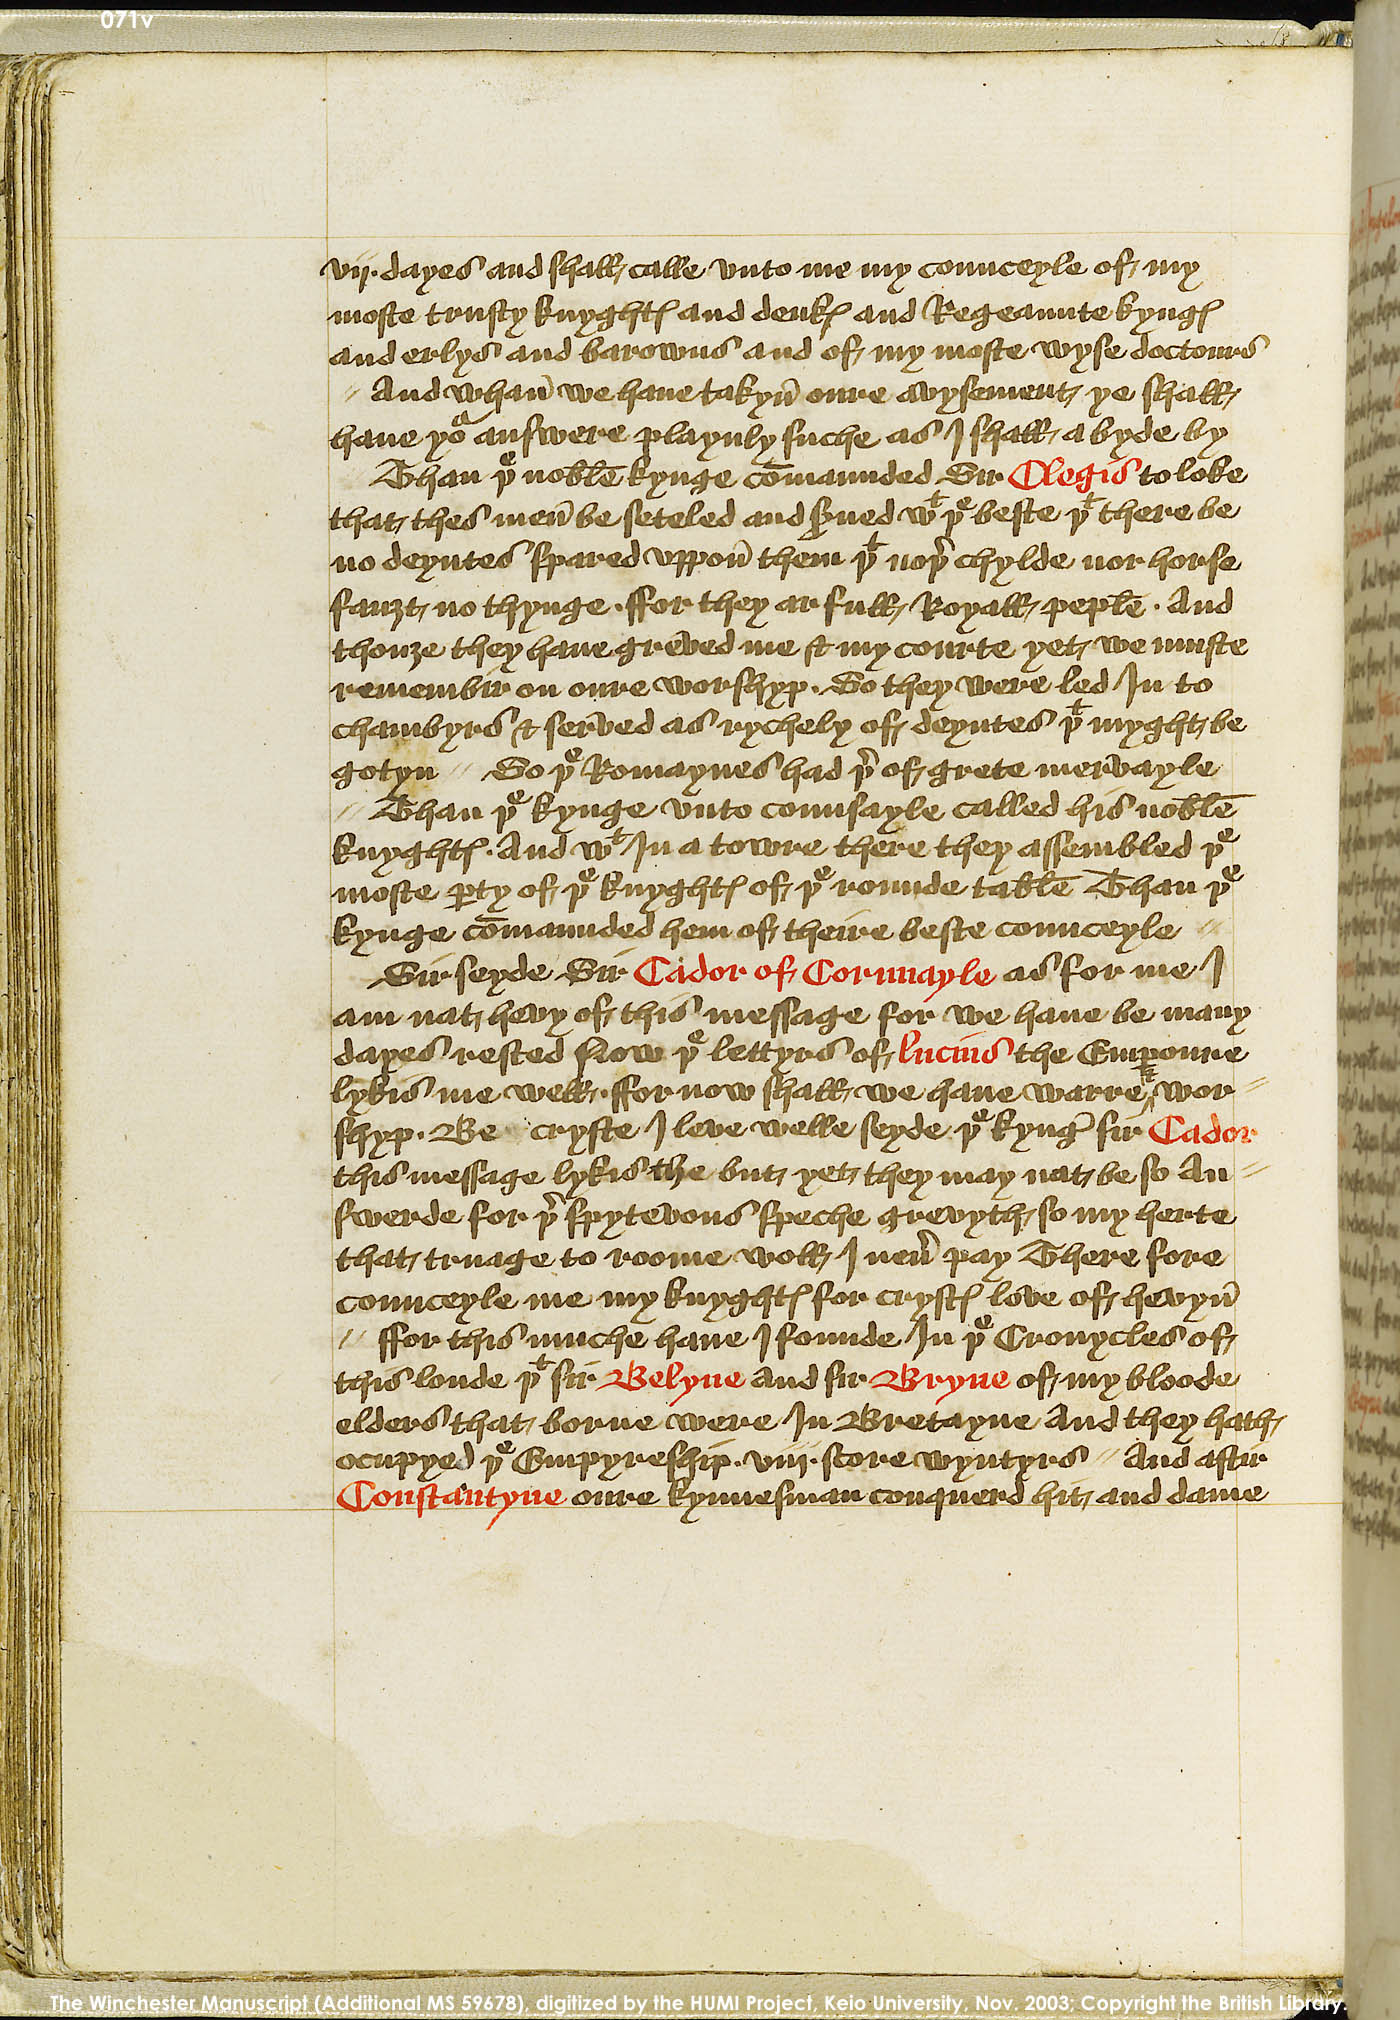 071v
vij. dayes and shall calle vnto me my counceyle of my
moste trusty knyghtꝭ and deukꝭ and Regeaunte kyngꝭ
and erlys and barowns and of my moste wyse doctours
// And whan̄ we haue takyn̄ oure avysement ye shall
haue yoᵘ answere playnly suche as I shall abyde by
Than þᵉ noble kynge cōmaunded Sir Clegis to loke
that thes men̄ be seteled and s̄ued wᵗ þᵉ beste þᵗ there be
no deyntes spared vppon̄ them þᵗ noþ̄ chylde nor horse
fauȝt no thynge. ffor they ar full Royall peple. And
thouȝe they haue greved me & my courte yet we muste
remembir on oure worshyp. So they were led In to
chambyrs & served as rychely of deyntes þᵗ myght be
gotyn // So þᵉ Romaynes had þ̄ of grete mervayle
// Than þᵉ kynge vnto counsayle called his noble
knyghtꝭ. And wᵗ In a towre there they assembled þᵉ
moste ꝑty of þᵉ knyghtꝭ of þᵉ rounde table Than þᵉ
kynge cōmaunded hem of theire beste counceyle //
Sir seyde Sir Cador of Cornuayle as for me I
am nat hevy of this message for we haue be many
dayes rested now þᵉ lettyrs of lucius the Emperoure
lykis me well. ffor now shall we haue warre & wor//
shyp. Be cryste I leve welle seyde þᵉ kynḡ sir Cador
this message lykis the but yet they may nat be so An//
swerde for þ̄ spytevous speche grevyth so my herte
that truage to roome woll I neū pay There fore
counceyle me my knyghtꝭ for crystꝭ love of hevyn̄
// ffor this muche haue I founde In þᵉ Cronycles of
this londe þᵗ sir Belyne and sir Bryne of my bloode
elders that borne were In Bretayne And they hath
ocupyed þᵉ Empyreship. viij. score wyntyrs // And aftir
Constantyne oure kynnesman conquerd hit and dame
The Winchester Manuscript (Additional MS 59678), digitized by the HUMI Project, Keio University, Nov. 2003; Copyright the British Library.